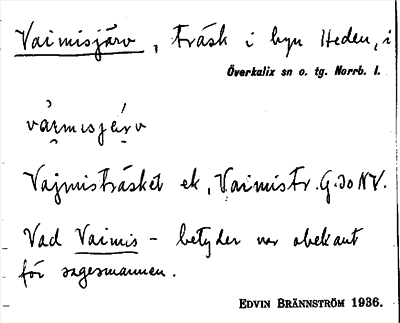 Vaimisjärv, träsk i byn Heden, i
Överkalix sn o. tg. Norrb. l.
Vajmisträsket ek, Vaimistr. G. 30 NV.
Vad Vaimis - betyder var obekant
för sagesmannen.
EDVIN BRÄNNSTRÖM 1936.